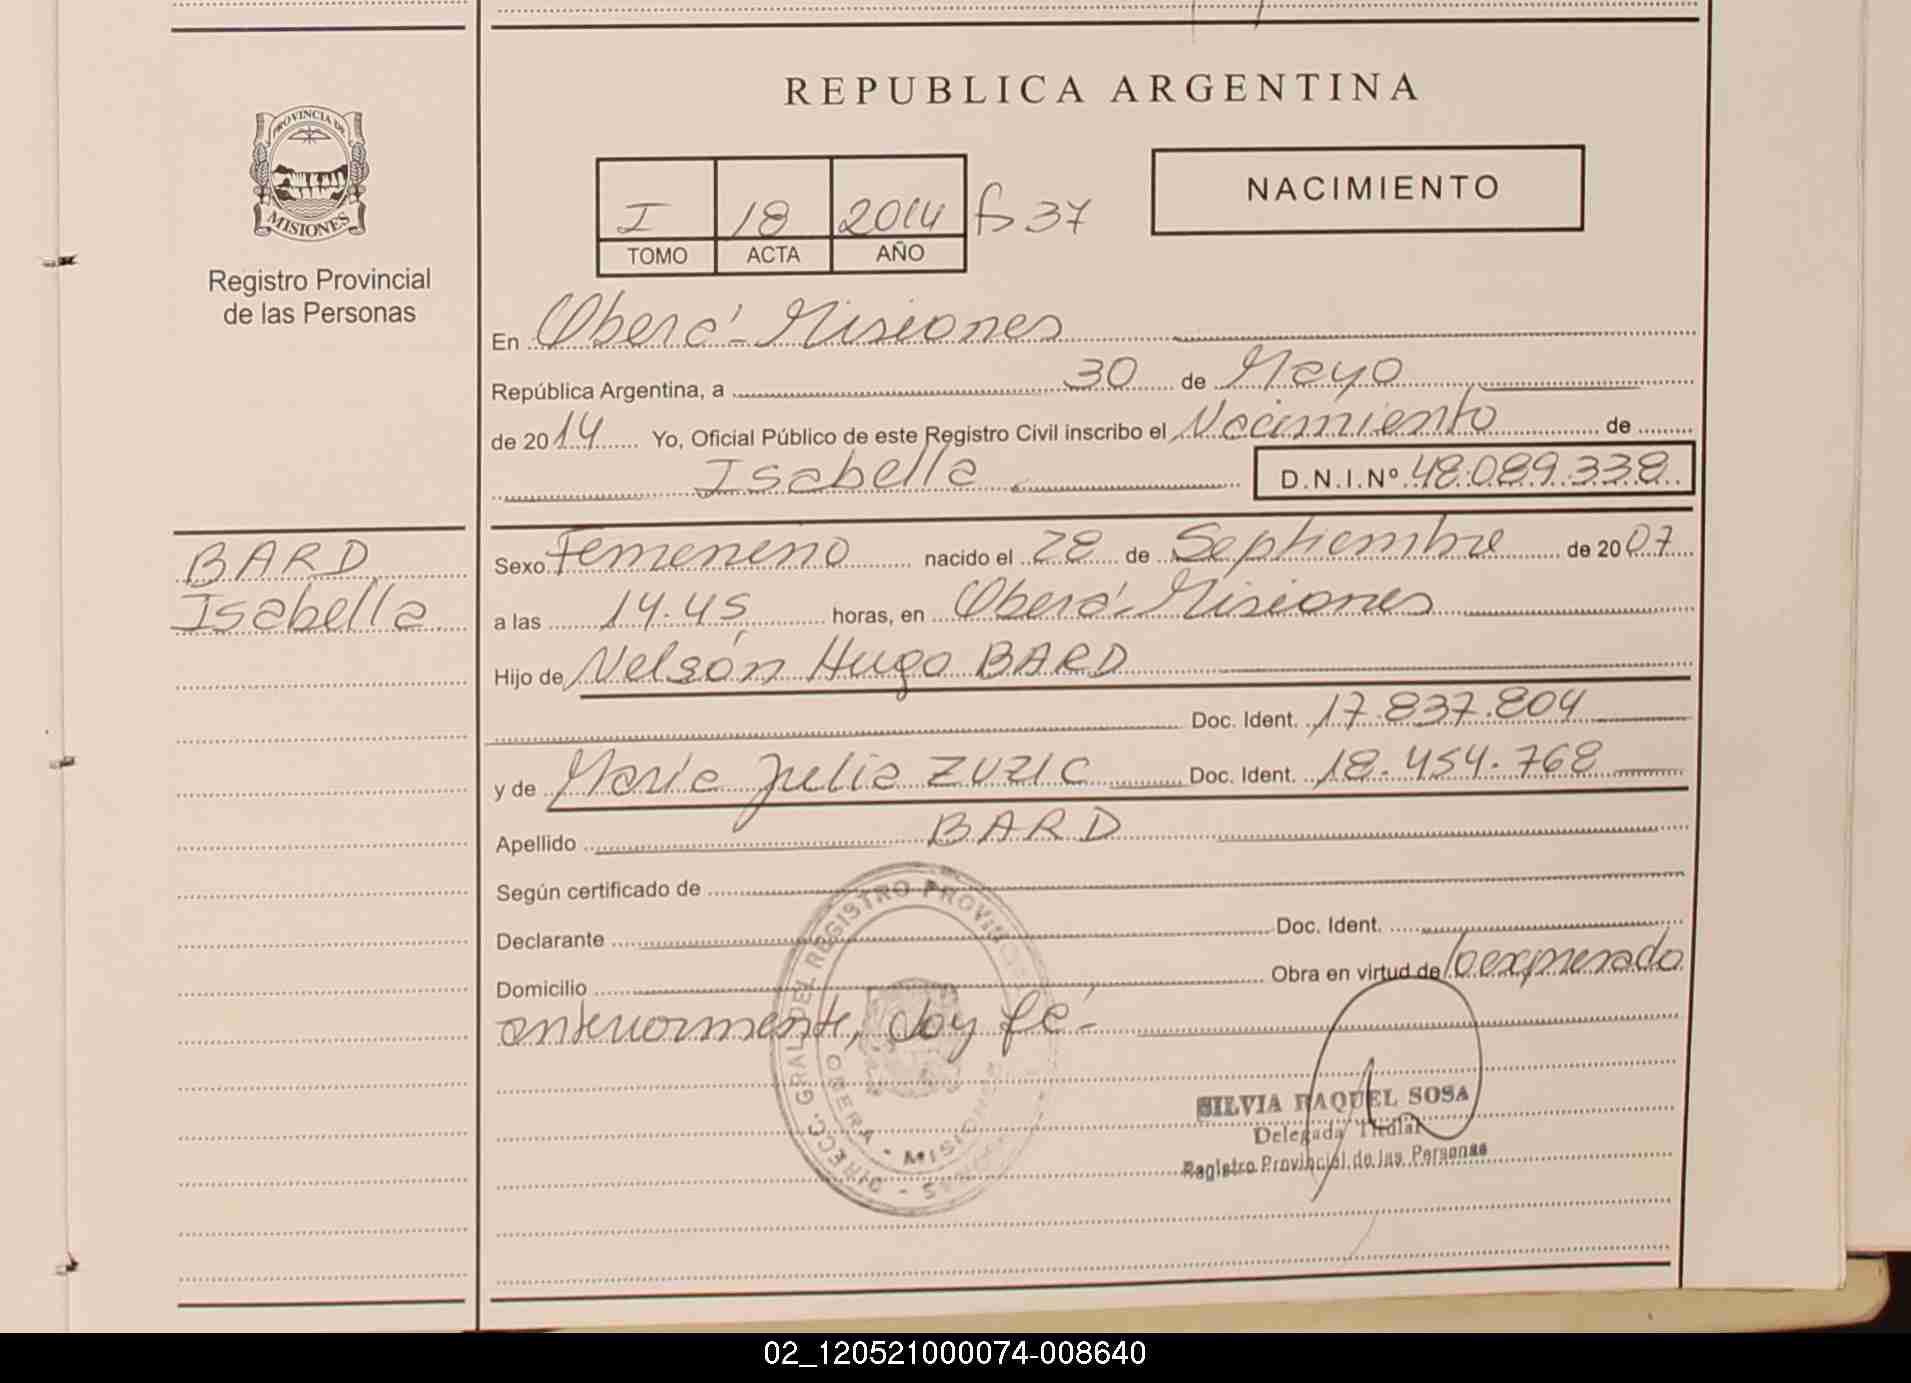 REPUBLICA ARGENTINA
PROVINCIA DE
MISIONES
Registro Provincial
de las Personas
I 18 2014 fs 37
TOMO ACTA AÑO
NACIMIENTO
En Oberá - Misiones
República Argentina, a 30 de Mayo
de 2014 Yo, Oficial Público de este Registro Civil inscribo el Nacimiento de
Isabella D.N.I.Nº 48.089.338
BARD
Isabella
Sexo Femenino nacido el 28 de Septiembre de 2007
a las 14.45 horas, en Oberá - Misiones
Hijo de Nelsón Hugo BARD
Doc. Ident. 17.837.804
y de María Julia ZUZIC Doc. Ident. 18.454.768
Apellido BARD
Según certificado de
Declarante Doc. Ident.
Domicilio Obra en virtud de lo expresado
anteriormente, doy fé.-
DIRECC. GRAL. DEL REGISTRO PROVIN
OBERA - MISIONES
SILVIA RAQUEL SOSA
Delegada Titular
Registro Provincial de las Personas
02_120521000074-008640